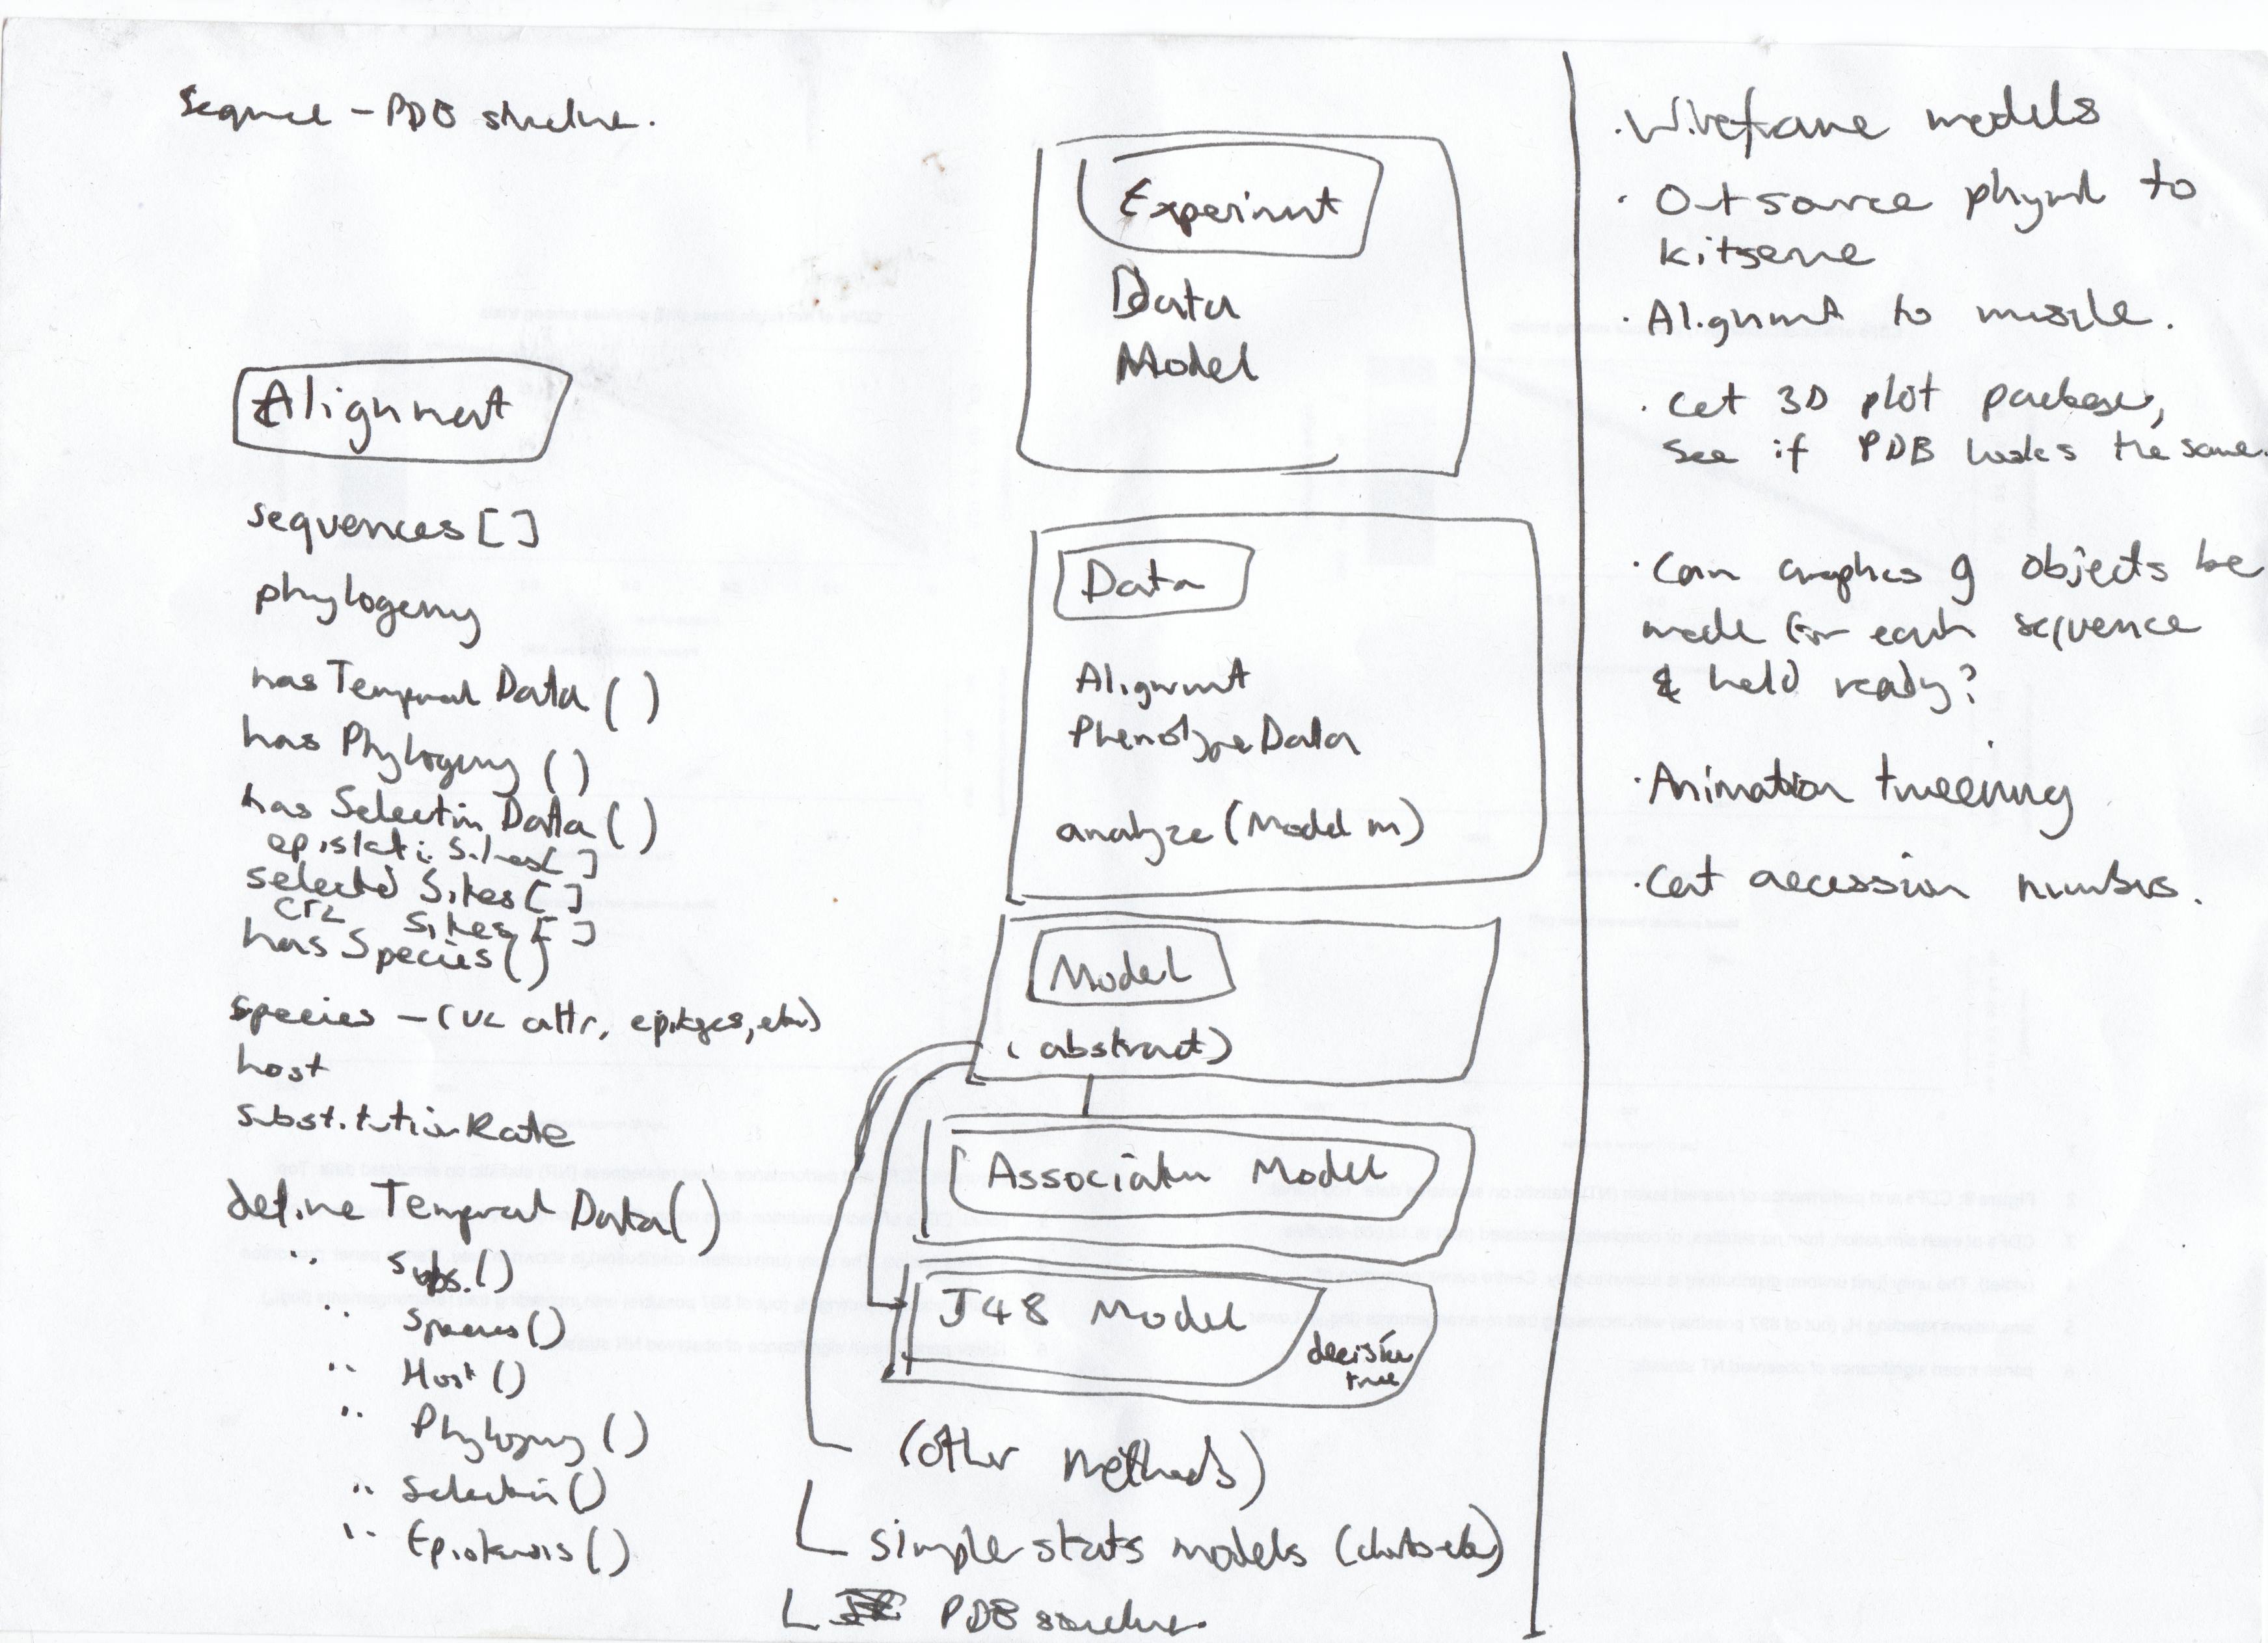 Sequence - PDB structure.
Alignment
sequences []
phylogeny
has Temporal Data ()
has Phylogeny ()
has Selection Data ()
epistatic Sites []
selected Sites []
Sites []
has Species ()
species - ( attr, epitopes, etc)
host
substitutionRate
define Temporal Data ()
" subs. ()
" Species ()
" Host ()
" Phylogeny ()
" Selection ()
" Epistasis ()
Experiment
Data
Model
Data
Alignment
Phenotype Data
analyze (Model m)
Model
(abstract)
Association Model
J48 Model
decision
tree
(other methods)
simple stats models (
PDB structure.
· Wireframe models
· Outsource phyml to
kitserve
· Alignment to muscle.
· Get 3D plot package,
see if PDB looks the same.
· Can graphics g objects be
made for each sequence
& held ready?
· Animation tweening
· Get accession numbers.